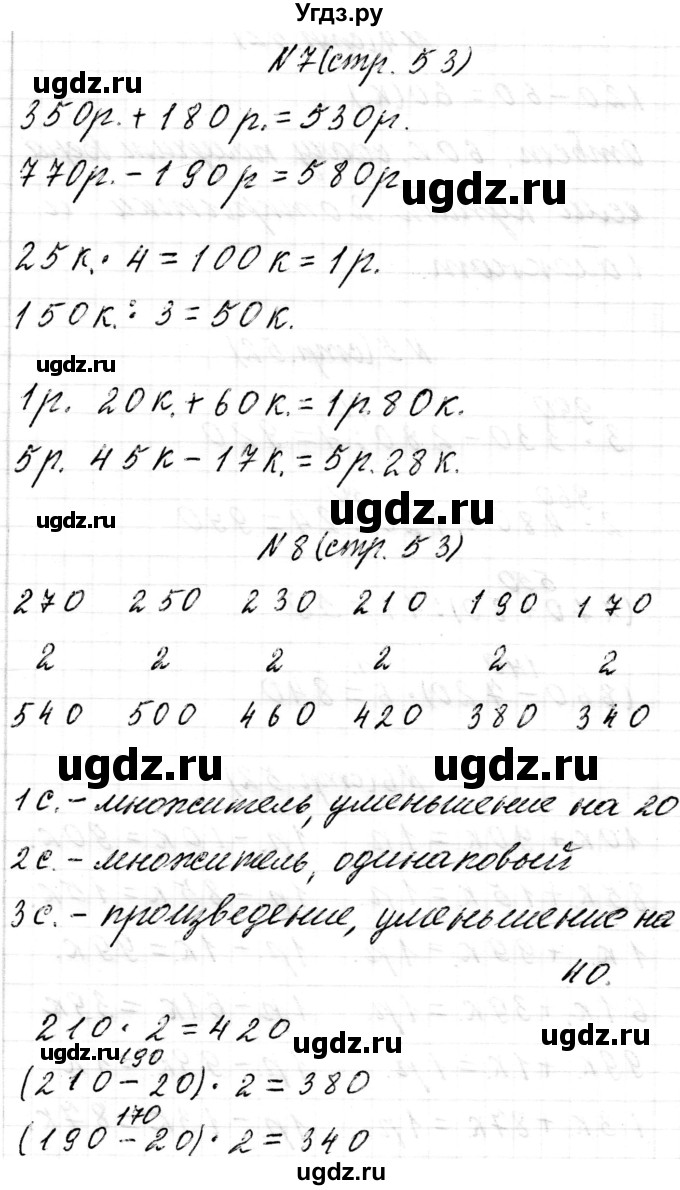 Угдз.ру
N7(стр. 53)
ugdz.ru
350р. + 180р. = 530р.
770р. - 190р = 580р
ugdz.ru
25к. · 4 = 100к = 1р.
150к. : 3 = 50к.
ugdz.ru
1р. 20к. + 60к. = 1р. 80к.
5р. 45к - 17к. = 5р. 28к.
ugdz.ru ugdz.ru
N8(стр. 53)
270 250 230 210 190 170
2 2 2 2 2 2
540 500 460 420 380 340
ugdz.ru ugdz.ru
1с. - множитель, уменьшение на 20
2с. - множитель, одинаковый
3с. - произведение, уменьшение на
40.
210 · 2 = 420
ugdz.ru
ugdz.ru 190
(210 - 20) · 2 = 380
170
(190 - 20) · 2 = 340
ugdz.ru